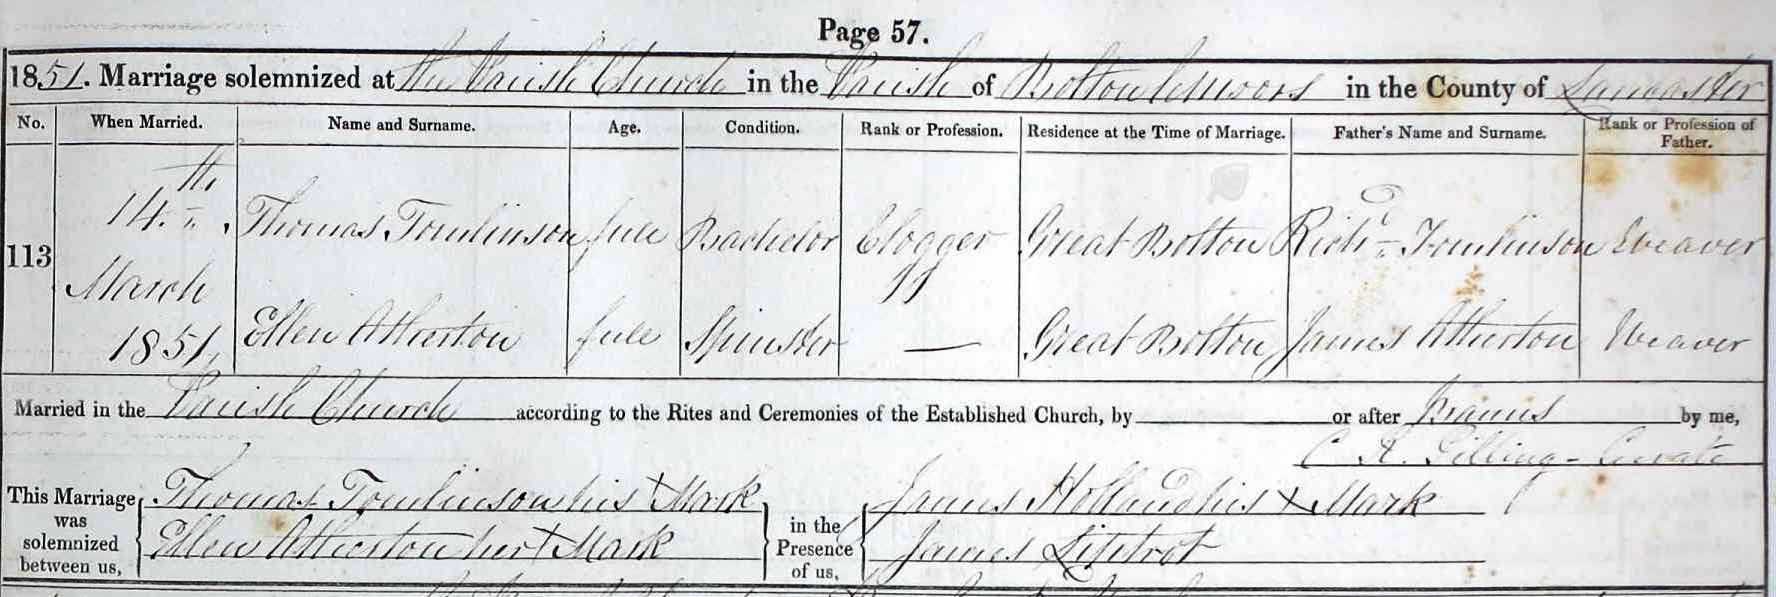 Page 57.
1851. Marriage solemnized at the Parish Church in the Parish of Bolton le Moors in the County of Lancaster
No. When Married. Name and Surname. Age. Condition. Rank or Profession. Residence at the Time of Marriage. Father's Name and Surname. Rank or Profession of Father.
113 14.th March 1851, Thomas Tomlinson full Bachelor Clogger Great Bolton Richd Tomlinson Weaver
Ellen Atherton full Spinster — Great Bolton James Atherton Weaver
Married in the Parish Church according to the Rites and Ceremonies of the Established Church, by or after Banns by me,
C A. Gilling - Curate
This Marriage was solemnized between us, Thomas Tomlinson his X Mark in the Presence of us, James Holland his X Mark
Ellen Atherton her X Mark James Liptrot